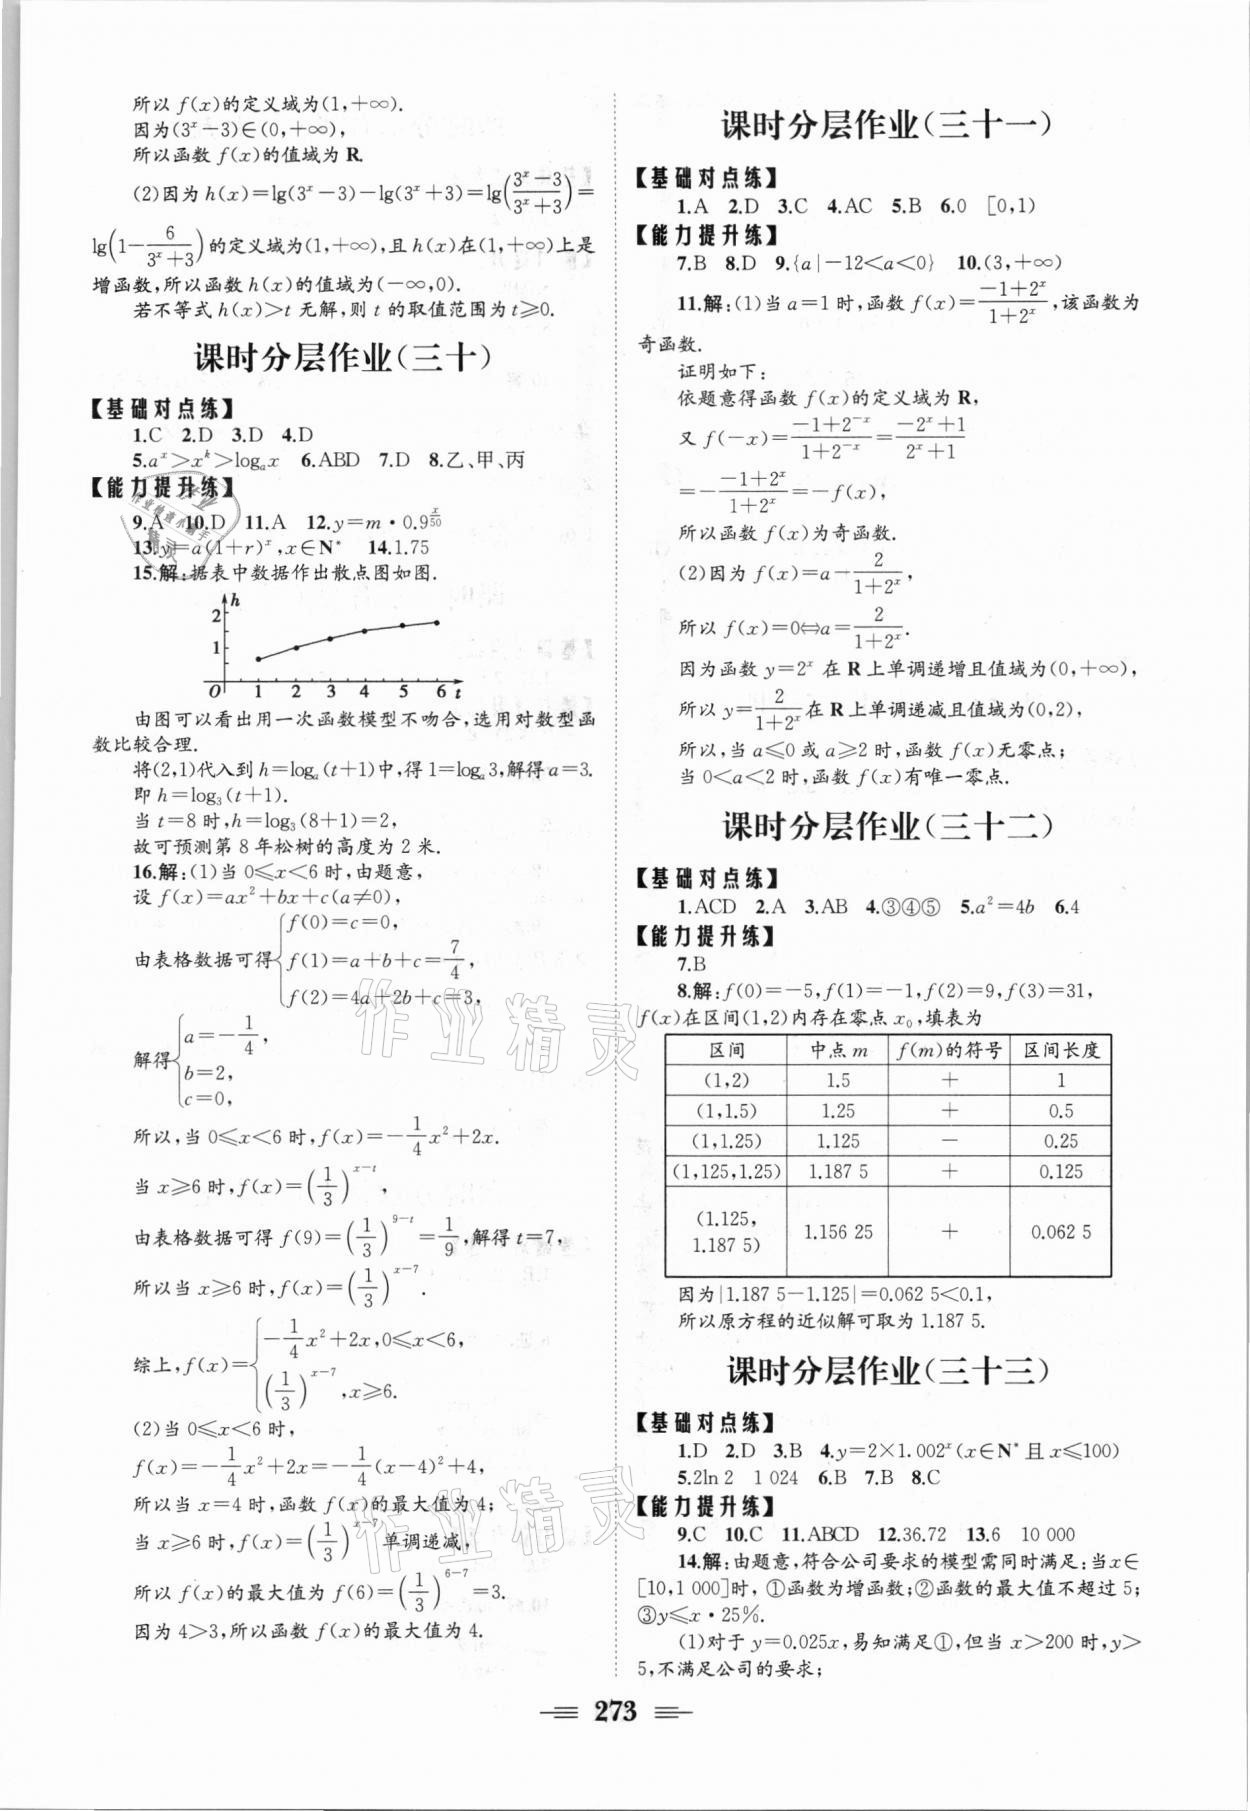 所以 f(x)的定义域为(1,+∞).
因为(3^x−3)∈(0,+∞),
所以函数 f(x)的值域为 R.
(2)因为 h(x)=lg(3^x−3)−lg(3^x+3)=lg((3^x−3)/(3^x+3))=
lg(1−6/(3^x+3))的定义域为(1,+∞),且 h(x)在(1,+∞)上是
增函数,所以函数 h(x)的值域为(−∞,0).
若不等式 h(x)>t 无解,则 t 的取值范围为 t⩾0.
课时分层作业(三十)
【基础对点练】
1.C 2.D 3.D 4.D
5.a^x>x^k>log_a x 6.ABD 7.D 8.乙、甲、丙
【能力提升练】
9.A 10.D 11.A 12.y=m·0.9^(x/50)
13.y=a(1+r)^x,x∈N* 14.1.75
15.解:据表中数据作出散点图如图.
h
2
1
O 1 2 3 4 5 6 t
由图可以看出用一次函数模型不吻合,选用对数型函
数比较合理.
将(2,1)代入到 h=log_a(t+1)中,得 1=log_a 3,解得 a=3.
即 h=log₃(t+1).
当 t=8 时,h=log₃(8+1)=2,
故可预测第 8 年松树的高度为 2 米.
16.解:(1)当 0⩽x<6 时,由题意,
设 f(x)=ax²+bx+c(a≠0),
由表格数据可得{f(0)=c=0,
f(1)=a+b+c=7/4,
f(2)=4a+2b+c=3,
解得{a=−1/4,
b=2,
c=0,
所以,当 0⩽x<6 时,f(x)=−1/4x²+2x.
当 x⩾6 时,f(x)=(1/3)^(x−t),
由表格数据可得 f(9)=(1/3)^(9−t)=1/9,解得 t=7,
所以当 x⩾6 时,f(x)=(1/3)^(x−7).
综上,f(x)={−1/4x²+2x,0⩽x<6,
(1/3)^(x−7),x⩾6.
(2)当 0⩽x<6 时,
f(x)=−1/4x²+2x=−1/4(x−4)²+4,
所以当 x=4 时,函数 f(x)的最大值为 4;
当 x⩾6 时,f(x)=(1/3)^(x−7)单调递减,
所以 f(x)的最大值为 f(6)=(1/3)^(6−7)=3.
因为 4>3,所以函数 f(x)的最大值为 4.
课时分层作业(三十一)
【基础对点练】
1.A 2.D 3.C 4.AC 5.B 6.0 [0,1)
【能力提升练】
7.B 8.D 9.{a|−12<a<0} 10.(3,+∞)
11.解:(1)当 a=1 时,函数 f(x)=(−1+2^x)/(1+2^x),该函数为
奇函数.
证明如下:
依题意得函数 f(x)的定义域为 R,
又 f(−x)=(−1+2^(−x))/(1+2^(−x))=(−2^x+1)/(2^x+1)
=−(−1+2^x)/(1+2^x)=−f(x),
所以函数 f(x)为奇函数.
(2)因为 f(x)=a−2/(1+2^x),
所以 f(x)=0⇔a=2/(1+2^x).
因为函数 y=2^x 在 R 上单调递增且值域为(0,+∞),
所以 y=2/(1+2^x)在 R 上单调递减且值域为(0,2),
所以,当 a⩽0 或 a⩾2 时,函数 f(x)无零点;
当 0<a<2 时,函数 f(x)有唯一零点.
课时分层作业(三十二)
【基础对点练】
1.ACD 2.A 3.AB 4.③④⑤ 5.a²=4b 6.4
【能力提升练】
7.B
8.解:f(0)=−5,f(1)=−1,f(2)=9,f(3)=31,
f(x)在区间(1,2)内存在零点 x₀,填表为
区间 中点 m f(m)的符号 区间长度
(1,2) 1.5 + 1
(1,1.5) 1.25 + 0.5
(1,1.25) 1.125 − 0.25
(1,125,1.25) 1.187 5 + 0.125
(1.125,
1.187 5) 1.156 25 + 0.062 5
因为|1.187 5−1.125|=0.062 5<0.1,
所以原方程的近似解可取为 1.187 5.
课时分层作业(三十三)
【基础对点练】
1.D 2.D 3.B 4.y=2×1.002^x(x∈N*且 x⩽100)
5.2ln 2 1 024 6.B 7.B 8.C
【能力提升练】
9.C 10.C 11.ABCD 12.36.72 13.6 10 000
14.解:由题意,符合公司要求的模型需同时满足:当 x∈
[10,1 000]时,①函数为增函数;②函数的最大值不超过 5;
③y⩽x·25%.
(1)对于 y=0.025x,易知满足①,但当 x>200 时,y>
5,不满足公司的要求;
273
作业精灵
作业精灵